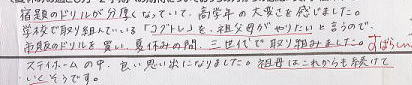 宿題のドリルが分厚くなっていて、高学年の大変さを感じました。
学校で取り組んでいる「コグトレ」を、祖父母がやりたいと言うので、
市販のドリルを買い、夏休みの間、三世代で取り組みました。すばらしい
ステイホームの中、良い思い出になりました。祖母はこれからも続けて
いくそうです。